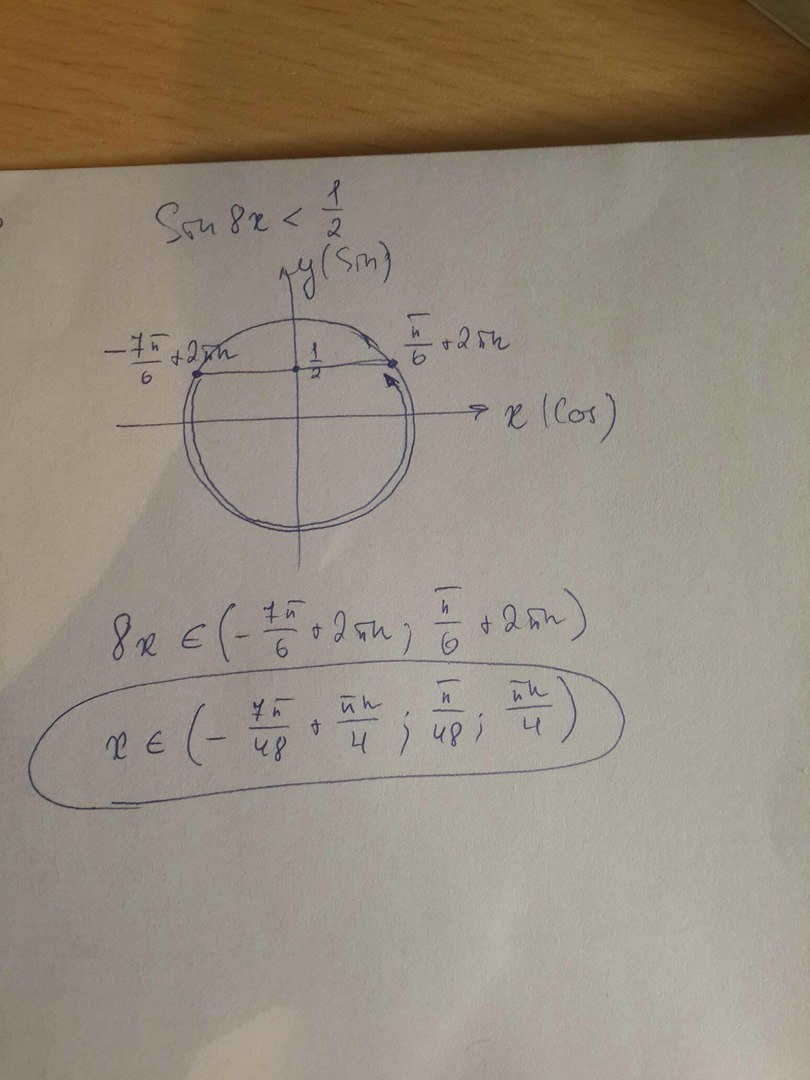 Sin 8x < 1/2
y(Sin)
-7π/6 + 2πn
1/2
π/6 + 2πn
x (Cos)
8x ∈ (-7π/6 + 2πn; π/6 + 2πn)
x ∈ (-7π/48 + πn/4; π/48; πn/4)